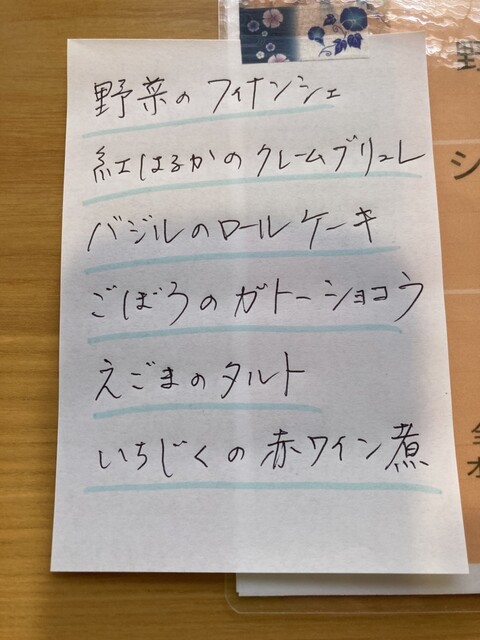 野菜のフィナンシェ
紅はるかのクレームブリュレ
バジルのロールケーキ
ごぼうのガトーショコラ
えごまのタルト
いちじくの赤ワイン煮